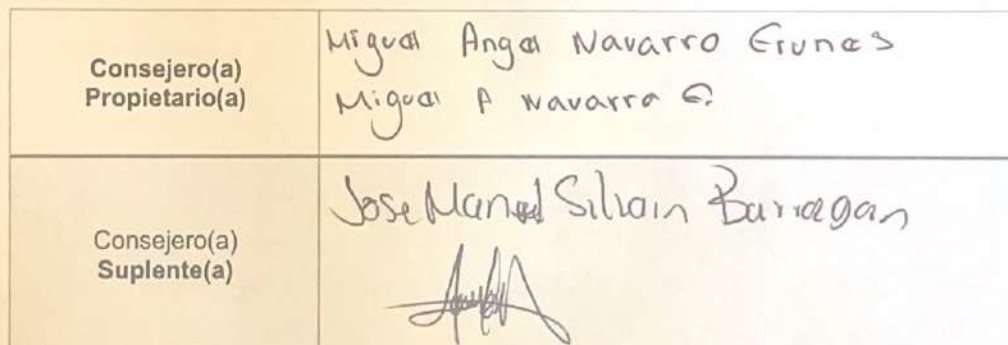 Consejero(a)
Propietario(a)
Miguel Angel Navarro Erunes
Miguel A Navarro E.
Consejero(a)
Suplente(a)
Jose Manuel Silvain Barragan